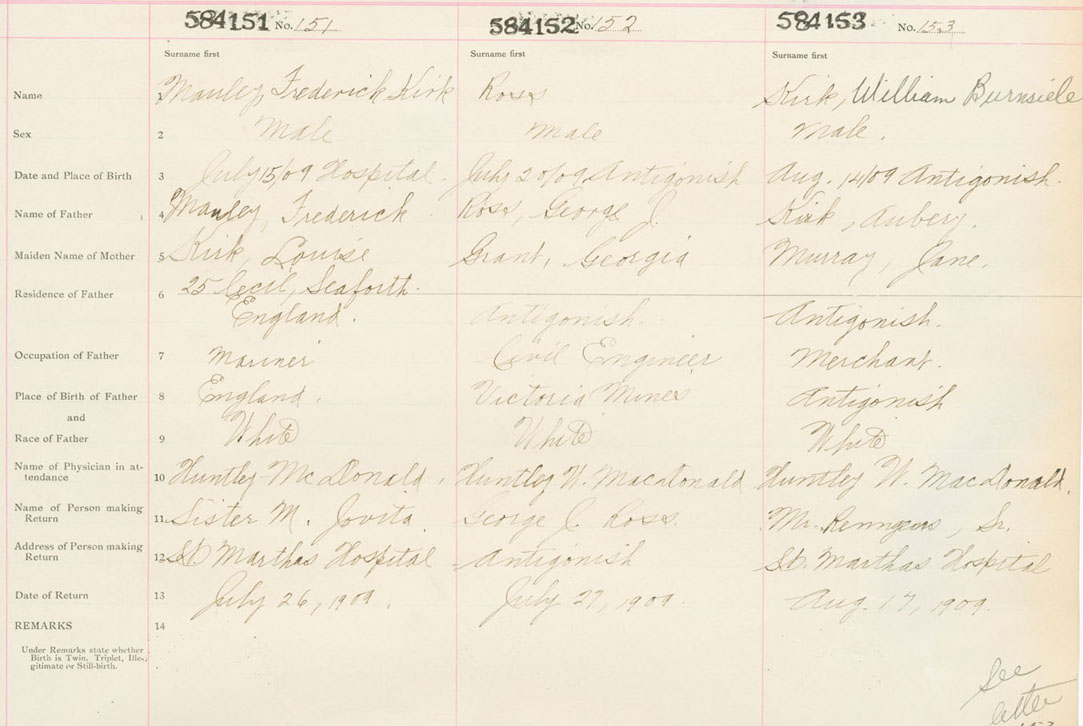 584151 No. 151 584152 No. 152 584153 No. 153
Surname first Surname first Surname first
Name 1 Manley, Frederick Kirk Ross Kirk, William Burnside
Sex 2 Male Male Male.
Date and Place of Birth 3 July 15/09 Hospital. July 20/09 Antigonish Aug. 14/09 Antigonish.
Name of Father 4 Manley, Frederick Ross, George J. Kirk, Aubery.
Maiden Name of Mother 5 Kirk, Louise Grant, Georgia Murray, Jane.
Residence of Father 6 25 Cecil, Seaforth.
England. Antigonish. Antigonish.
Occupation of Father 7 Mariner Civil Engineer Merchant.
Place of Birth of Father 8 England. Victoria Mines Antigonish
and
Race of Father 9 White White White
Name of Physician in at-
tendance 10 Huntley McDonald. Huntley W. Macdonald Huntley W. MacDonald.
Name of Person making
Return 11 Sister M. Jovita. George J. Ross. Mr. , Sr.
Address of Person making
Return 12 St Marthas Hospital Antigonish St. Marthas Hospital
Date of Return 13 July 26, 1909. July 27, 1909. Aug. 17, 1909.
REMARKS 14
Under Remarks state whether
Birth is Twin, Triplet, Ille-
gitimate or Still-birth.
See
letter
153